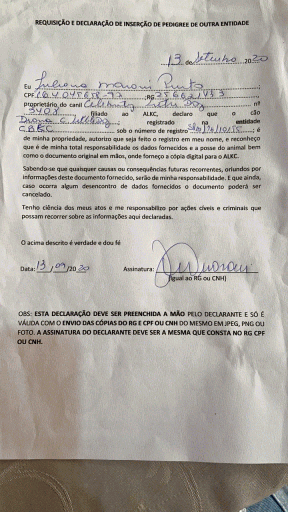 REQUISIÇÃO E DECLARAÇÃO DE INSERÇÃO DE PEDIGREE DE OUTRA ENTIDADE
13 de Setembro 2020
Eu Juliana Pinto
CPF RG
proprietário do canil Celebrity nº
filiado ao ALKC, declaro que o cão
registrado na entidade
sob o número de registro ; é
de minha propriedade, autorizo que seja feito o registro em meu nome, e reconheço
que é de minha total responsabilidade os dados fornecidos e a posse do animal bem
como o documento original em mãos, onde forneço a cópia digital para o ALKC.
Sabendo-se que quaisquer causas ou consequências futuras recorrentes, oriundos por
informações deste documento fornecido, serão de minha responsabilidade. E que ainda,
caso ocorra algum desencontro de dados fornecidos o documento poderá ser
cancelado.
Tenho ciência dos meus atos e me responsabilizo por ações cíveis e criminais que
possam recorrer sobre as informações aqui declaradas.
O acima descrito é verdade e dou fé
Data: 13/09/2020 Assinatura:
(Igual ao RG ou CNH)
OBS: ESTA DECLARAÇÃO DEVE SER PREENCHIDA A MÃO PELO DECLARANTE E SÓ É
VÁLIDA COM O ENVIO DAS CÓPIAS DO RG E CPF OU CNH DO MESMO EM JPEG, PNG OU
FOTO. A ASSINATURA DO DECLARANTE DEVE SER A MESMA QUE CONSTA NO RG CPF
OU CNH.